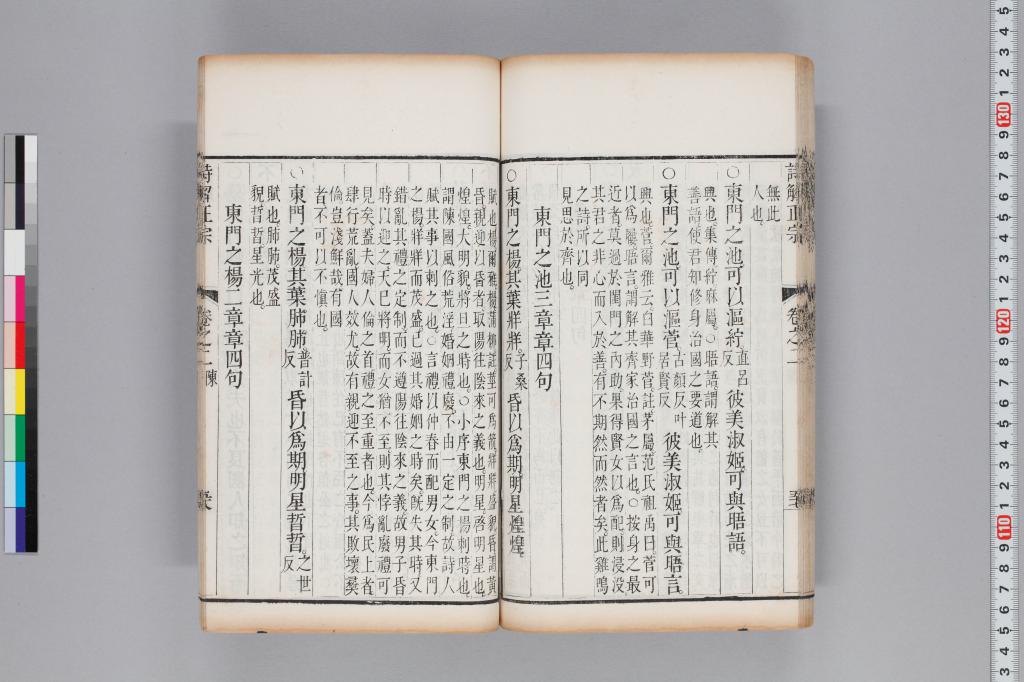 詩解正宗
卷之二
無此
人也。
○東門之池可以漚紵直呂反彼美淑姬可與晤語。
興也集傳紵麻屬。○晤語謂解其
善語使君知修身治國之要道也。
○東門之池可以漚菅古顏反叶居賢反彼美淑姬可與晤言。
興也菅爾雅云白華野菅註茅屬范氏祖禹曰菅可
以為屨晤言謂解其齊家治國之言也。○按身之最
近者莫過於閨門之內助果得賢女以為配則浸沒
其君之非心而入於善有不期然而然者矣此雞鳴
之詩所以同
見思於齊也。
東門之池三章章四句
○東門之楊其葉牂牂子桑反昏以為期明星煌煌。
賦也楊爾雅楊蒲柳註華可為箭牂牂盛貌昏謂黃
昏親迎以昏者取陽往陰來之義也明星啓明星也
煌煌大明貌將旦之時也。○小序東門之楊刺時也
謂陳國風俗荒淫婚姻禮廢不由一定之制故詩人
賦其事以刺之也。○言禮以仲春而配男女今東門
之楊牂牂而茂盛已過其婚姻之時矣旣失其時又
錯亂其禮之定制而不遵陽往陰來之義故男子昏
時以迎之天已將明而女猶不至則其悖亂廢禮可
見矣蓋夫婦人倫之首禮之至重者也今為民上者
肆行荒亂國人效尤故有親迎不至之事其敗壞彜
倫豈淺鮮哉有國
者不可以不愼也。
○東門之楊其葉肺肺普計反昏以為期明星晢晢之世反
賦也肺肺茂盛
貌晢晢星光也。
東門之楊二章章四句
卷之二
陳